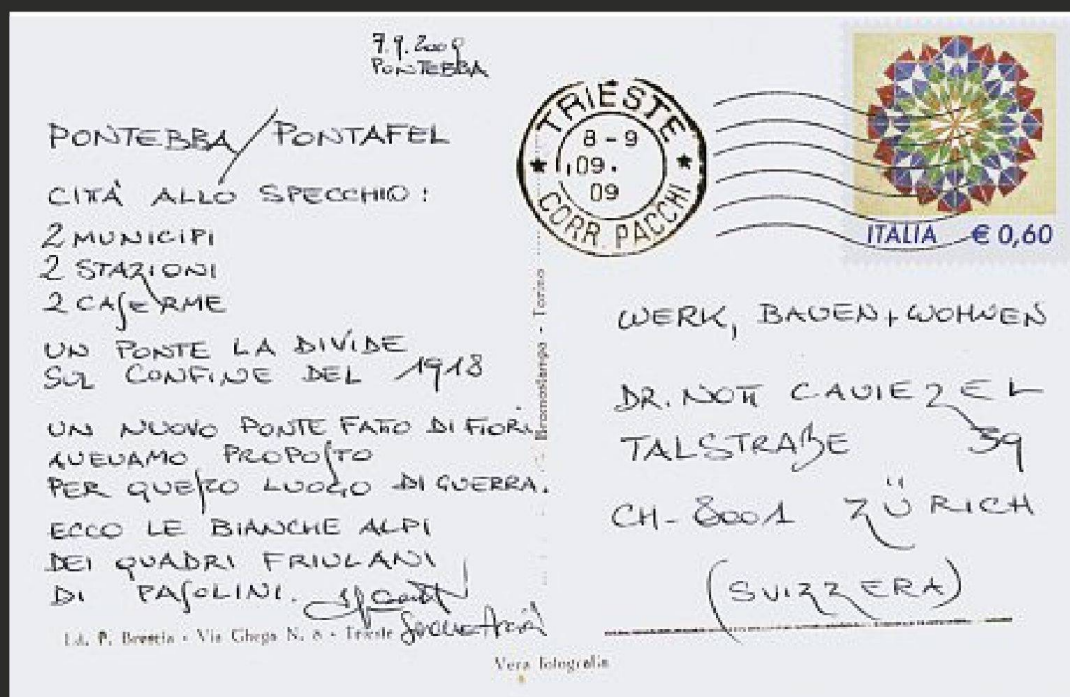 7.9.2009
PONTEBBA
PONTEBBA/PONTAFEL
CITTÀ ALLO SPECCHIO:
2 MUNICIPI
2 STAZIONI
2 CASERME
UN PONTE LA DIVIDE
SUL CONFINE DEL 1918
UN NUOVO PONTE FATTO DI FIORI
AVEVAMO PROPOSTO
PER QUESTO LUOGO DI GUERRA.
ECCO LE BIANCHE ALPI
DEI QUADRI FRIULANI
DI PASOLINI.
P. Brestia - Via Ghega N. 8 - Trieste
Vera fotografia
Bromostampa - Torino
TRIESTE
8-9
09.
09
CORR. PACCHI
ITALIA € 0,60
WERK, BAUEN + WOHNEN
DR. NOTT CAVIEZEL
TALSTRAßE 39
CH-8001 ZÜRICH
(SVIZZERA)